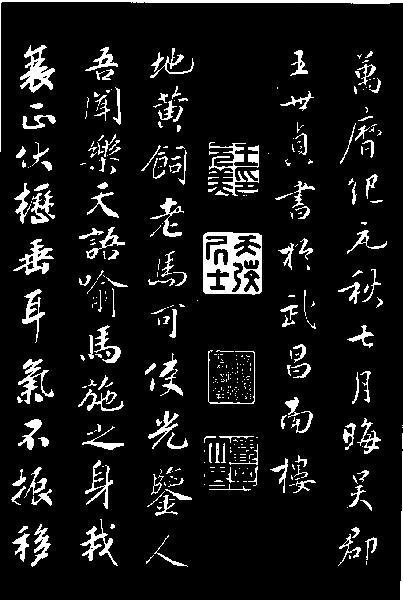 萬曆紀元秋七月晦吳郡
王世貞書於武昌南樓
王印元美
天弢居士
地黄飼老馬可使光鑒人
吾聞樂天語喻馬施之身我
衰正伏櫪垂耳氣不振移